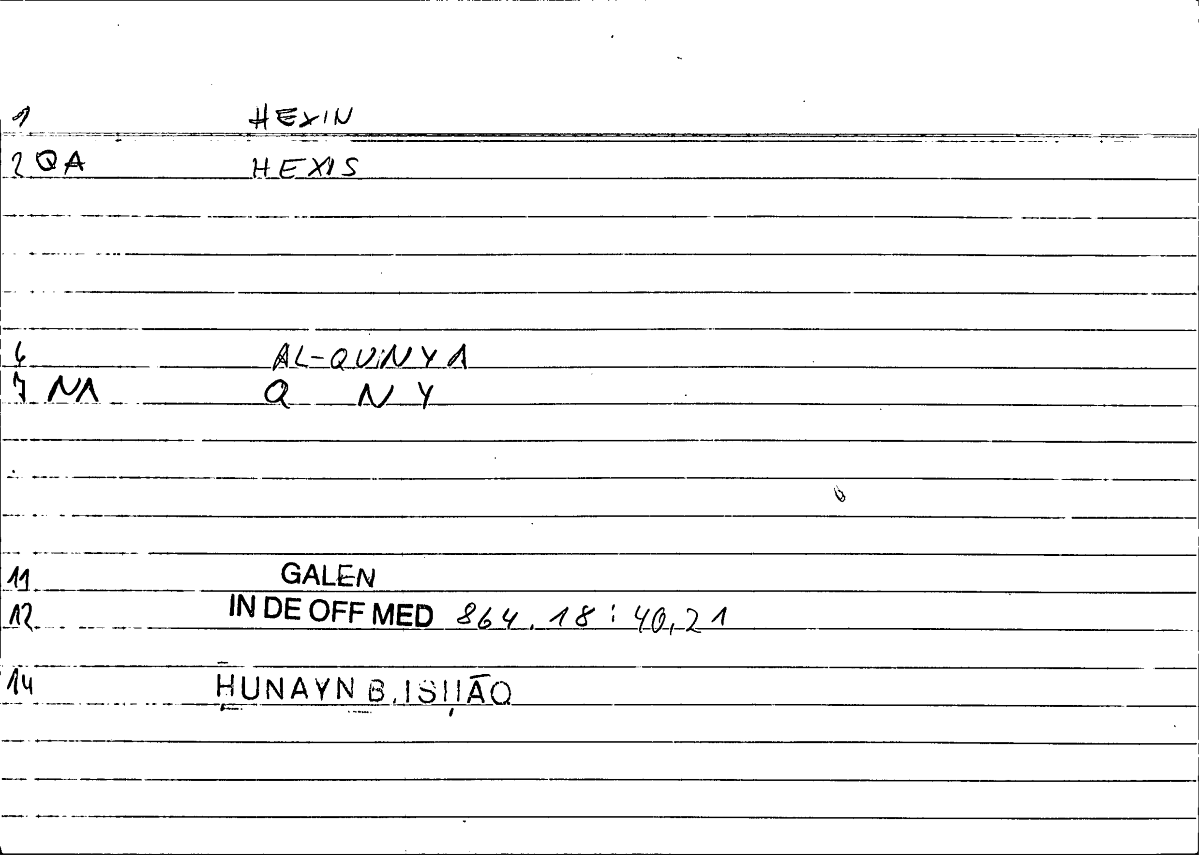 1 HEXIN
2 QA HEXIS
6 AL-QUNYA
7 NA Q N Y
11 GALEN
12 IN DE OFF MED 864.18 : 40,21
14 ḤUNAYN B. ISḤĀQ